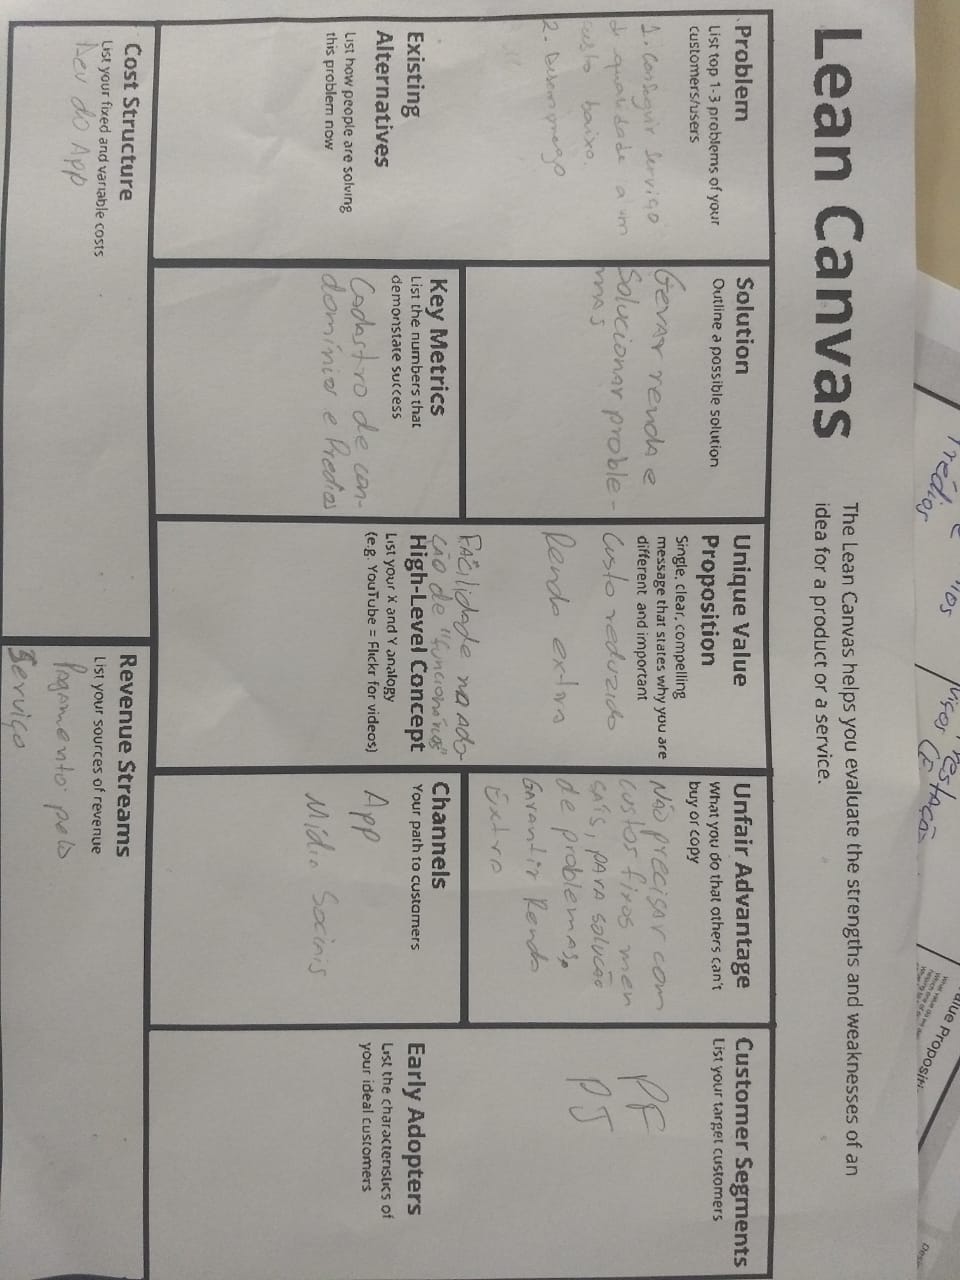 rédios
nos
viços
restação
CE
alue Propositi
Lean Canvas
The Lean Canvas helps you evaluate the strengths and weaknesses of an
idea for a product or a service.
Problem
List top 1-3 problems of your
customers/users
1. Conseguir Serviço
de qualidade a um
custo baixo.
2. Desemprego
Existing
Alternatives
List how people are solving
this problem now
Solution
Outline a possible solution
Gerar renda e
Solucionar proble-
mas
Key Metrics
List the numbers that
demonstate success
Cadastro de con-
domínios e Predios
Unique Value
Proposition
Single, clear, compelling
message that states why you are
different and important
Custo reduzido
Renda extra
Facilidade na ado-
ção de "funcionários"
High-Level Concept
List your X and Y analogy
(e.g. YouTube = Flickr for videos)
Unfair Advantage
What you do that others can't
buy or copy
Não precisar com
custos fixos men
sais, para solução
de problemas.
Garantir Renda
Extra
Channels
Your path to customers
App
Mídia Sociais
Customer Segments
List your target customers
PF
PJ
Early Adopters
List the characteristics of
your ideal customers
Cost Structure
List your fixed and variable costs
Dev do App
Revenue Streams
List your sources of revenue
Pagamento pelo
Serviço